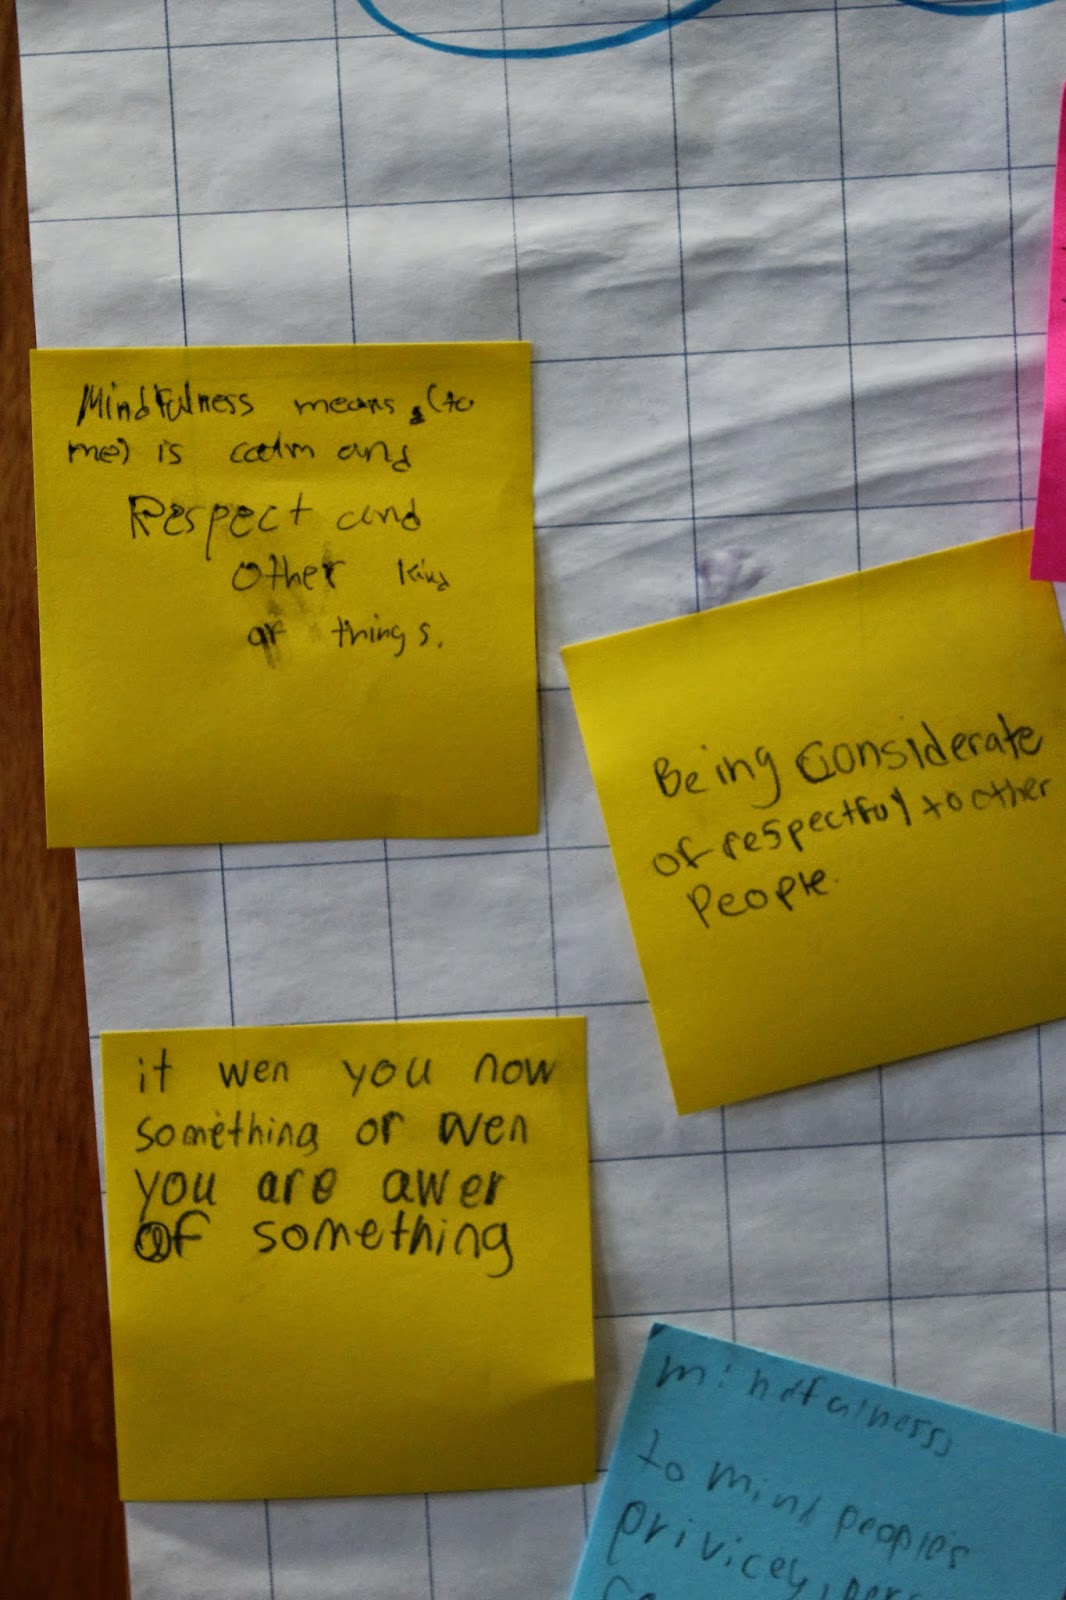 Mindfulness means, (to
me) is calm and
Respect and
other kind
of things.
Being Considerate
of respectful to other
People.
it wen you now
something or wen
you are awer
of something
mindfulness
to mind people's
privicey,